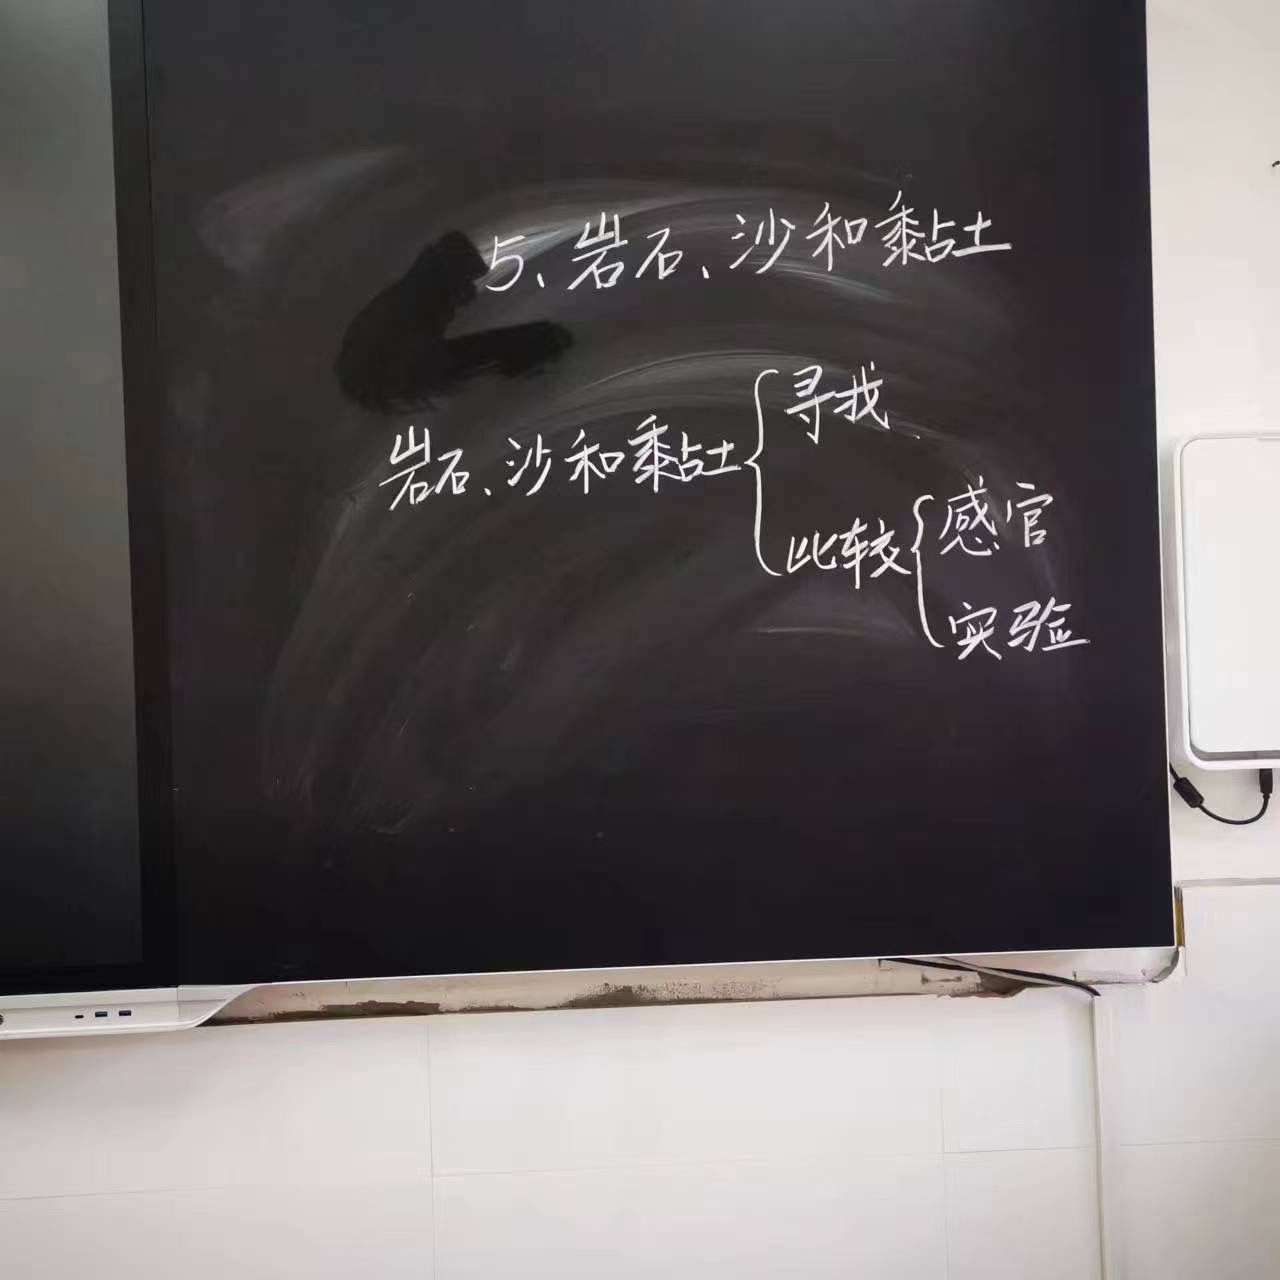 5、岩石、沙和黏土
寻找
岩石、沙和黏土
比较
感官
实验